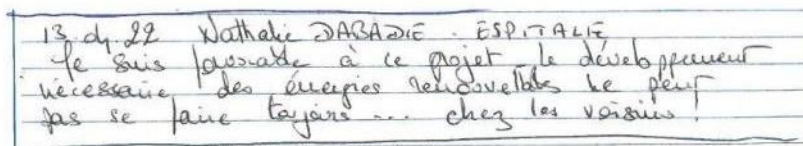 13.04.22 Nathalie DABADIE. ESPITALIE
Je suis favorable à ce projet le développement
nécessaire des énergies renouvelables ne peut
pas se faire toujours ... chez les voisins !